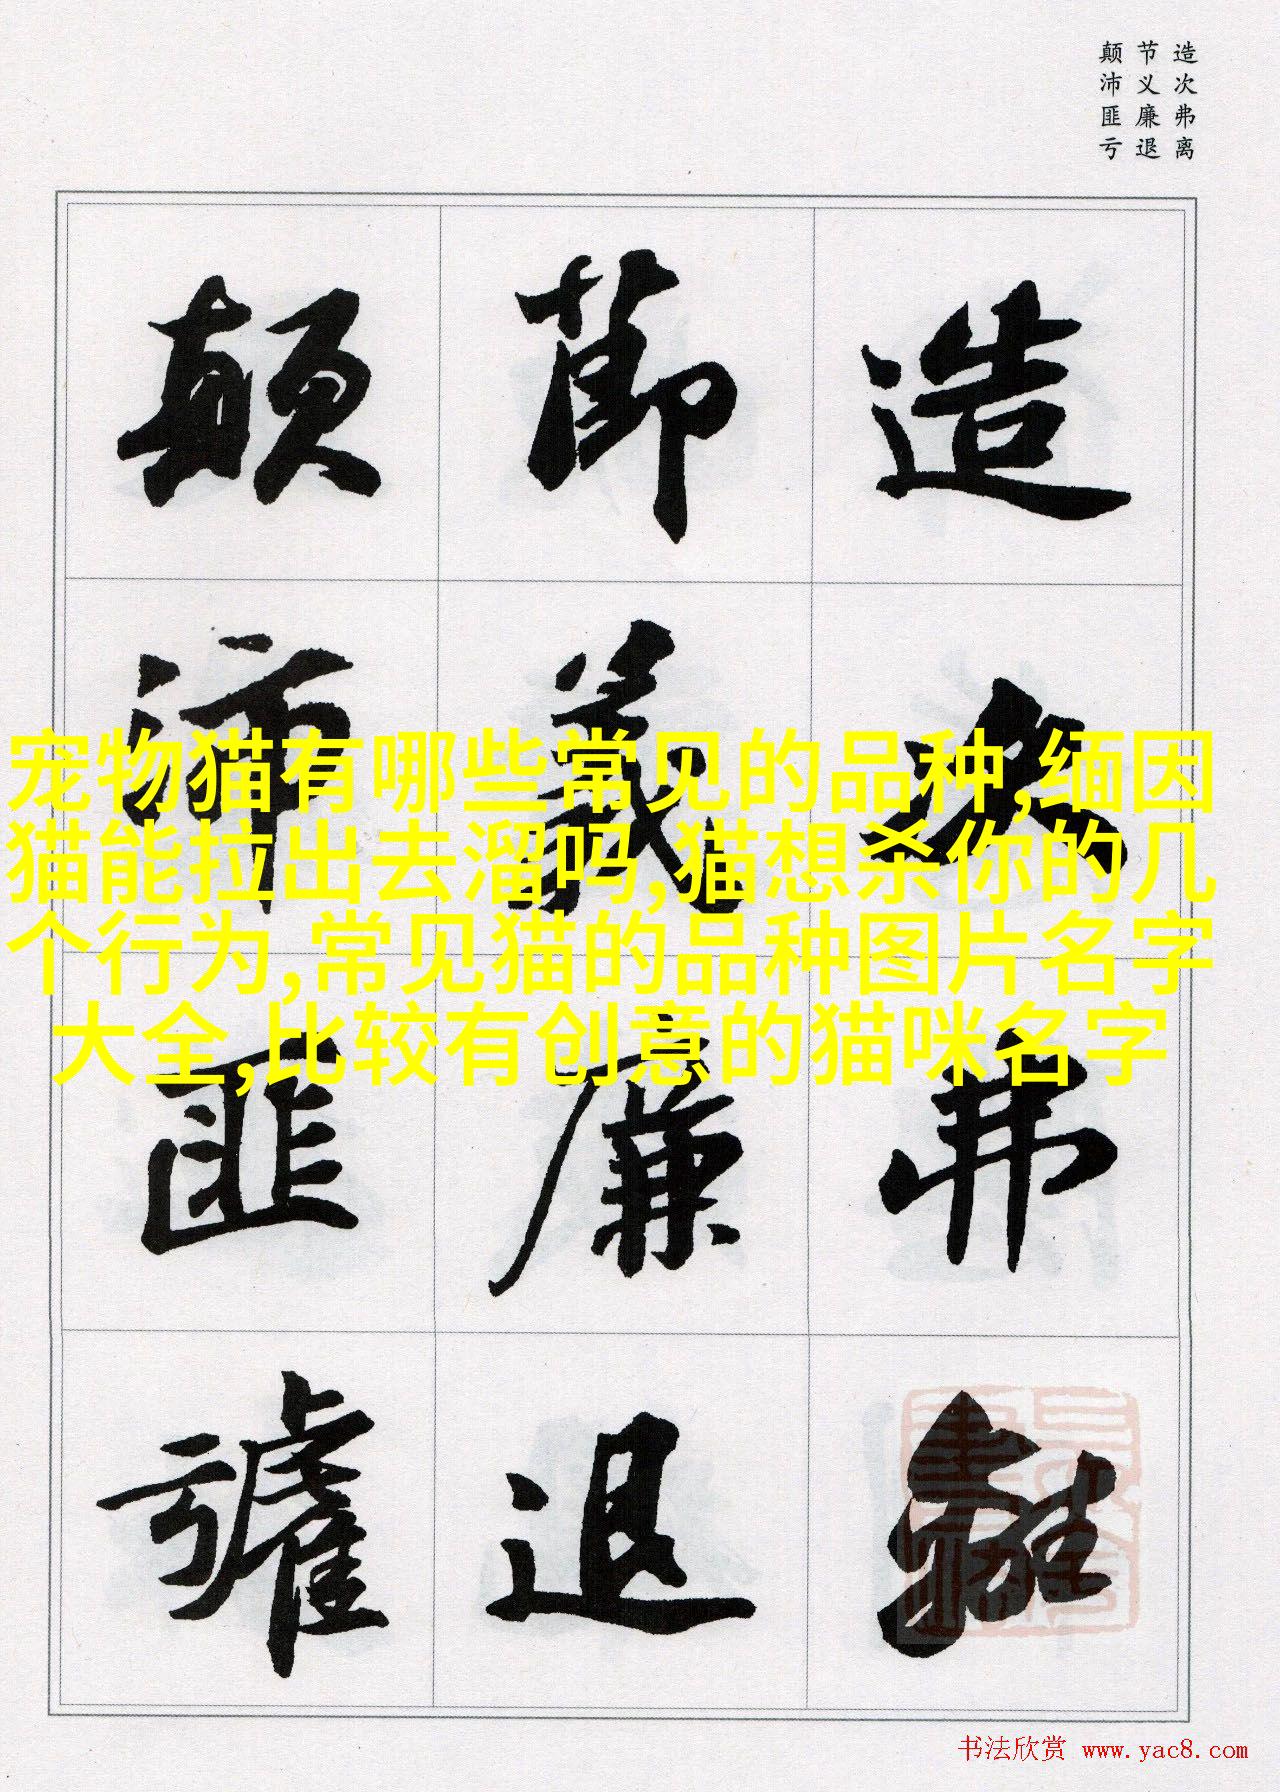 造次弗离
节义廉退
颠沛匪亏
造次弗離
節義廉退
顛沛匪虧
宠物猫有哪些常见的品种,缅因
猫能拉出去溜吗,猫想杀你的几
个行为,常见猫的品种图片名字
大全,比较有创意的猫咪名字
书法欣赏 www.yac8.com